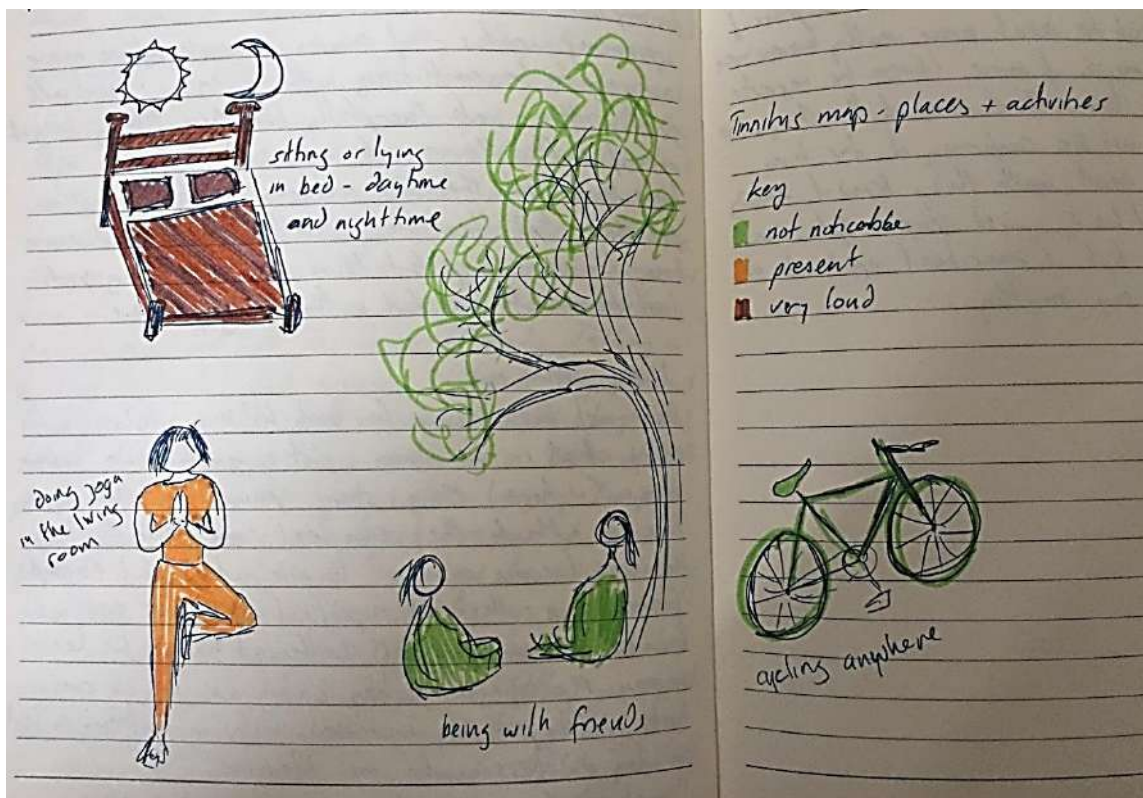 sitting or lying
in bed - daytime
and nighttime
doing yoga
in the living
room
being with friends
Tinnitus map - places + activities
key
not noticeable
present
very loud
cycling anywhere